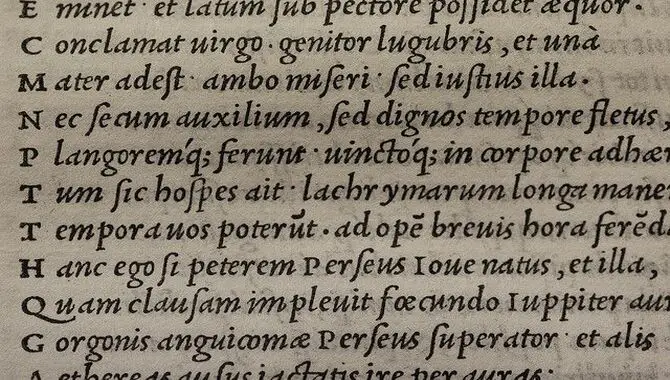 E minet · et latum ſub pectore poſſidet æquor ·
C onclamat uirgo · genitor lugubris, et unà
M ater adeſt · ambo miſeri · ſed iuſtius illa ·
N ec ſecum auxilium, ſed dignos tempore fletus,
P langoremq́; ferunt · uinctoq́; in corpore adhær
T um ſic hoſpes ait · lachrymarum longa mane
T empora uos poterũt · ad opẽ breuis hora ferẽda
H anc ego ſi peterem Perſeus Ioue natus, et illa,
Q uam clauſam impleuit fœcundo Iuppiter au
G orgonis anguicomæ Perſeus ſuperator · et alis
A ethereas auſus iactatis ire per auras ·